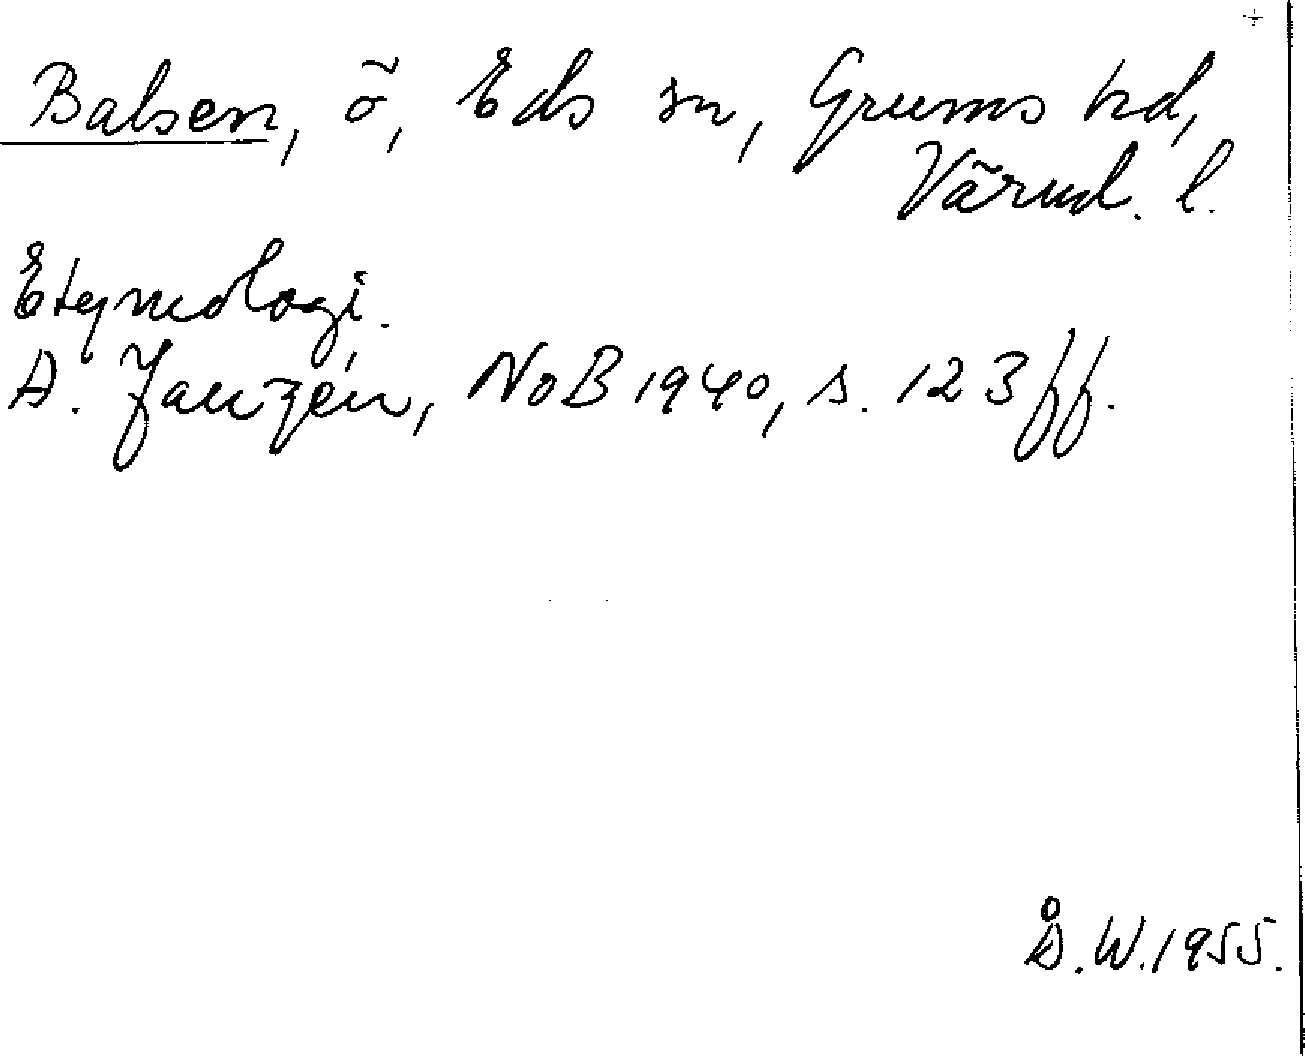 Balsen, ö, Eds sn, Grums hd,
Värml. l.
Etymologi.
A. Janzén, NoB 1940, s. 123 ff.
Å.W. 1955.